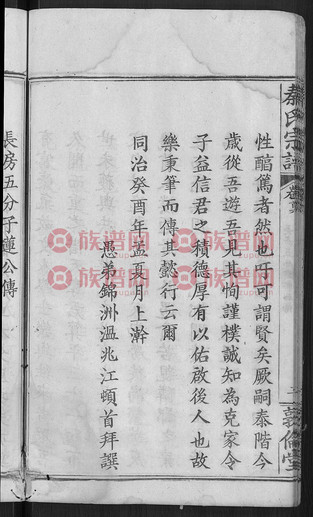 性醕篤者然也吁可謂賢矣厥嗣泰階今
歲從吾遊吾見其恂謹樸誠知為克家令
子益信君之積德厚有以佑啟後人也故
樂秉筆而傳其懿行云爾
同治癸酉年孟夏月上澣
愚弟錦洲溫兆江頓首拜譔
長房五分子蓮公傳
族譜网
族譜网
族譜网
族譜网